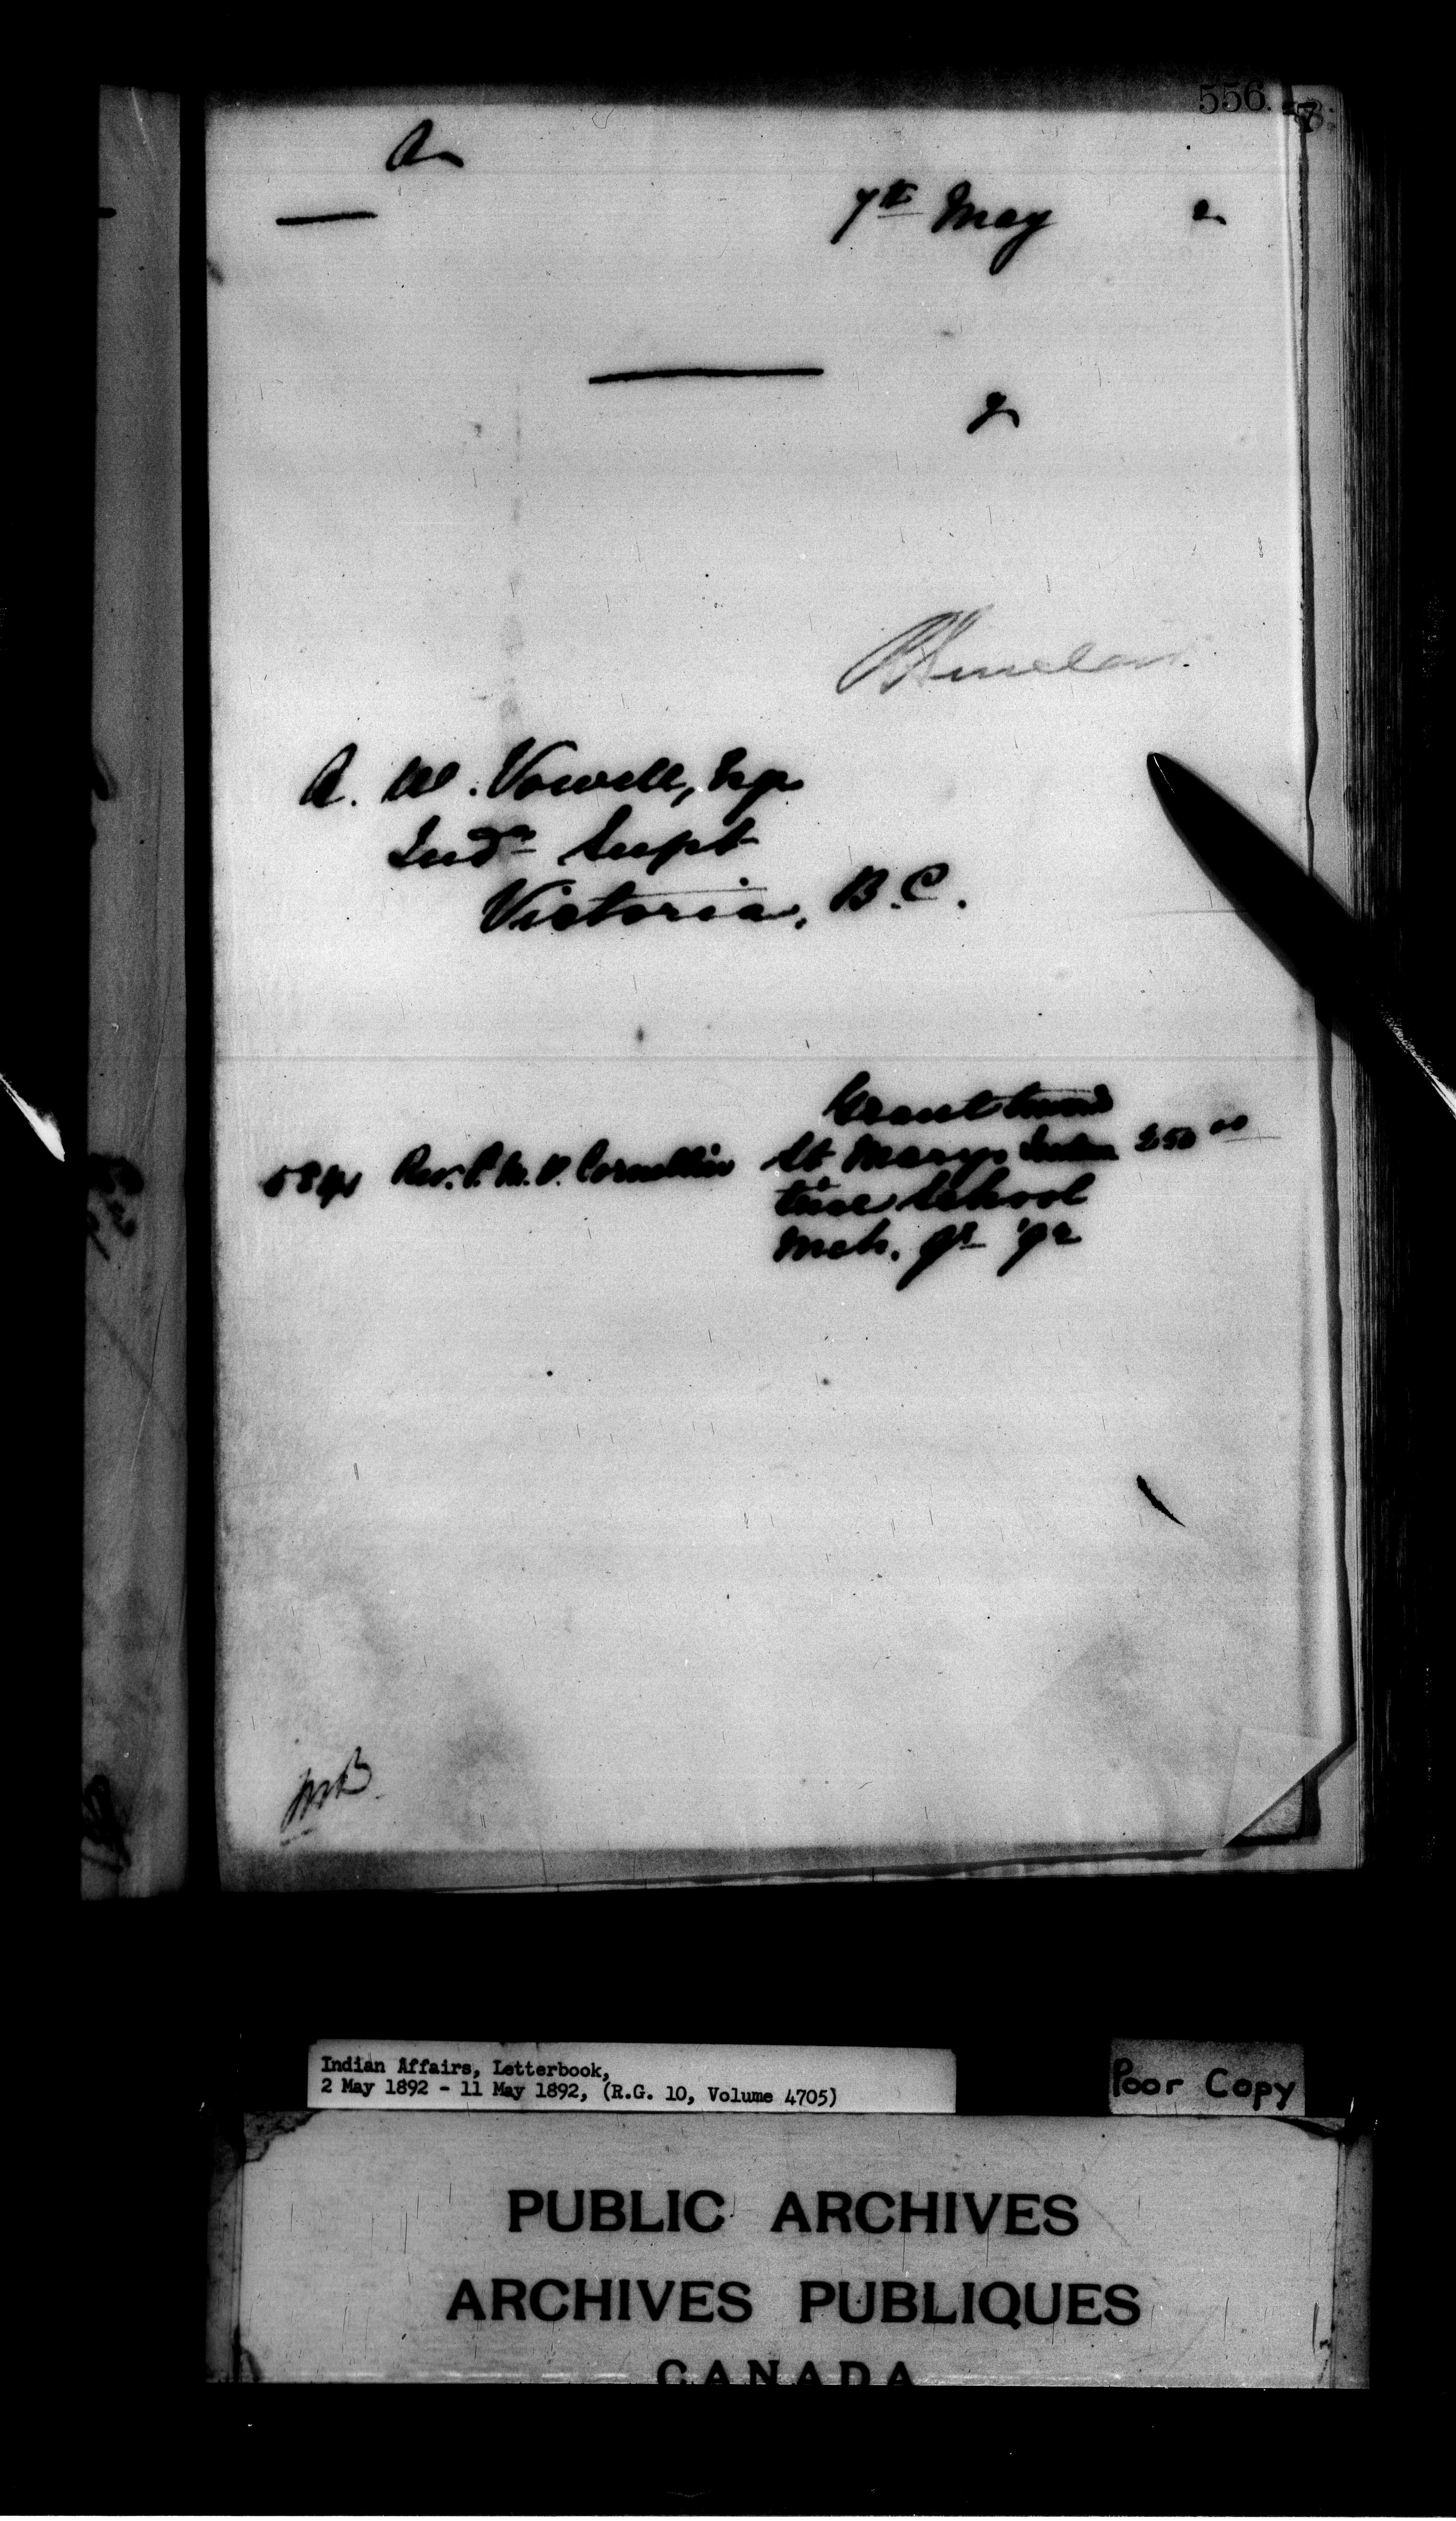 556.
A
7th May 2
A. W. Vowell, Esq.
Ind. Supt
Victoria, B.C.
Grant towards
Rev. P. M. D. Cornellier St Mary's Indus 250 00
trial School
Mch. qr '92
Indian Affairs, Letterbook,
2 May 1892 - 11 May 1892, (R.G. 10, Volume 4705)
Poor Copy
PUBLIC ARCHIVES
ARCHIVES PUBLIQUES
CANADA